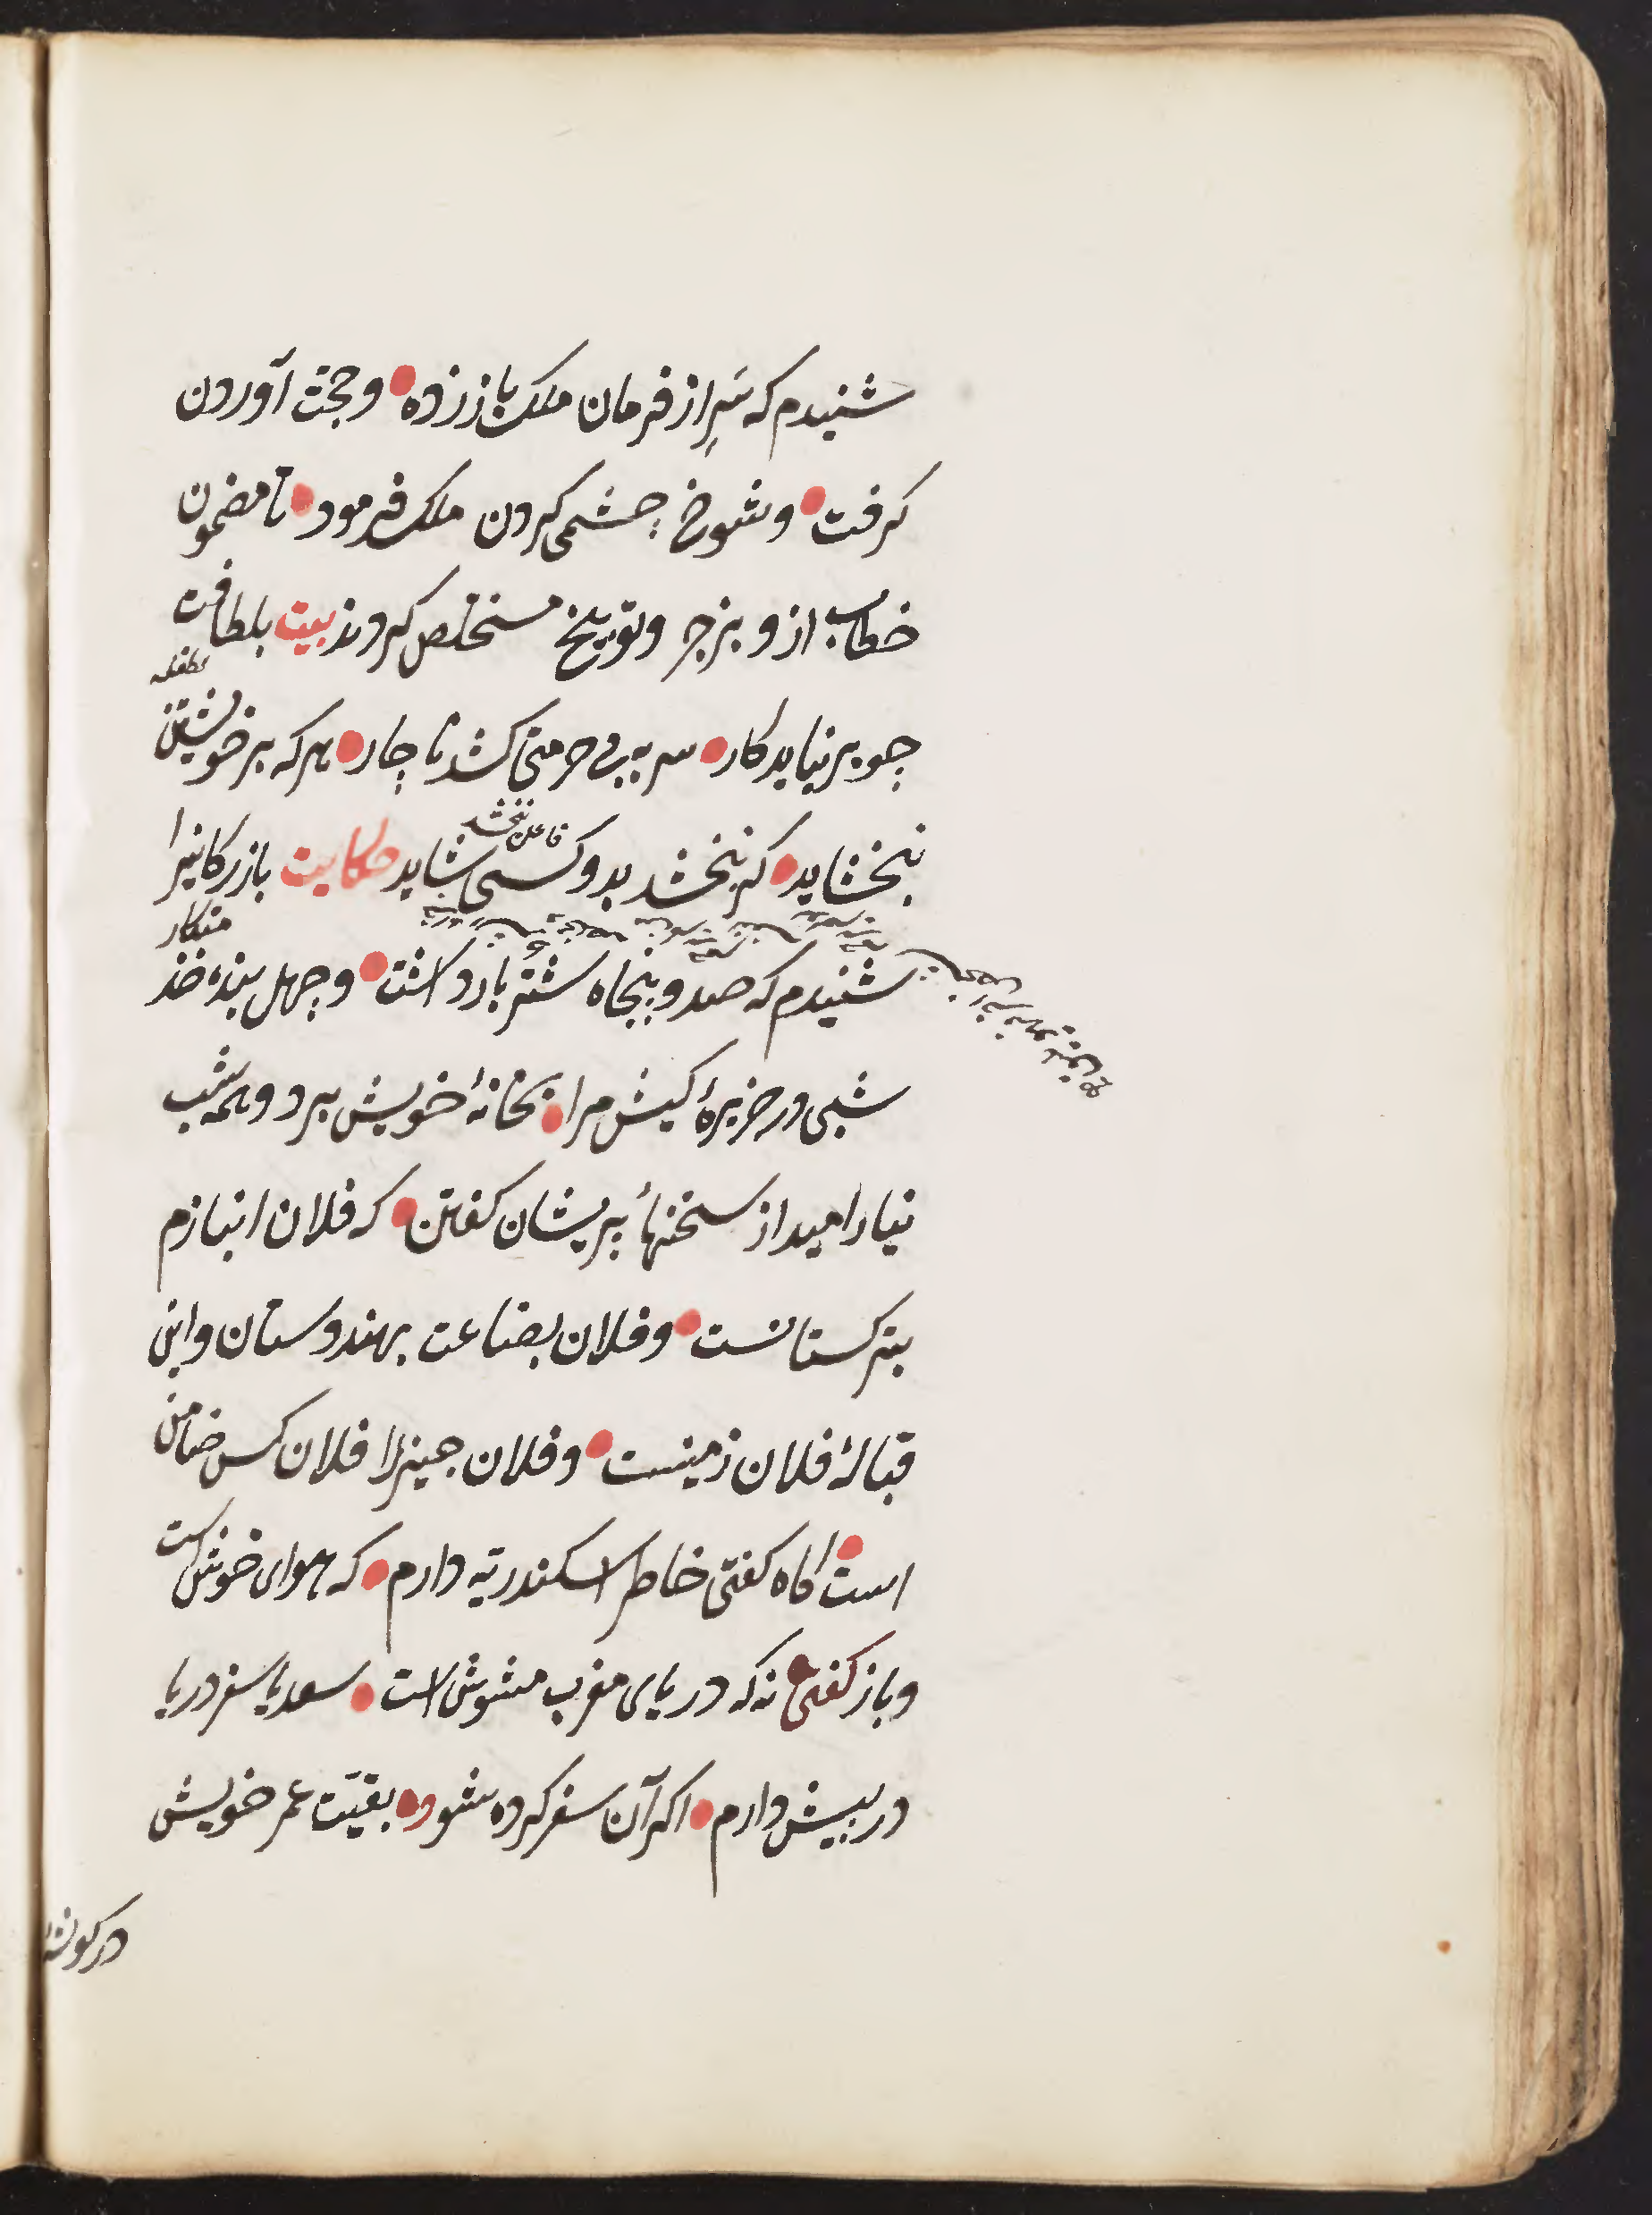 شنیدم که سَرِ از فرمان ملک باز زده و حجّت آوردن
کرفت و شوخ چشمی کردن ملک فرمود تا مضمون
خطاب از و بزجر و توبیخ مستخلص کردند بیت بلطافت
چو بر نیاید کار سر به بی حرمتی کشد نا چار هر که بر خویشتن
نبخشاید کر نبخشد بدو کسی شاید حکایت بازرکانیرا
شنیدم که صد و پنجاه شتُر بار داشت و چهل بندهٔ خذ
متکار
شبی در جزیرهٔ کیش مرا بخانهٔ خویش برد و همه شب
نیارامید از سخنهأ پریشان کفتن که فلان انبازم
بترکستانست و فلان بضاعت بهندوستان و این
قبالهٔ فلان زمینست و فلان چیز را فلان کس ضامن
است کاه کفتی خاطر اسکندریّه دارم که هوای خوش است
و باز کفتی نه که دریای مغرب مشوش است سعدیا سفر دریا
در پیش دارم اکر آن سفر کرده شود بقیّت عمر خویش
در کوشهٔ